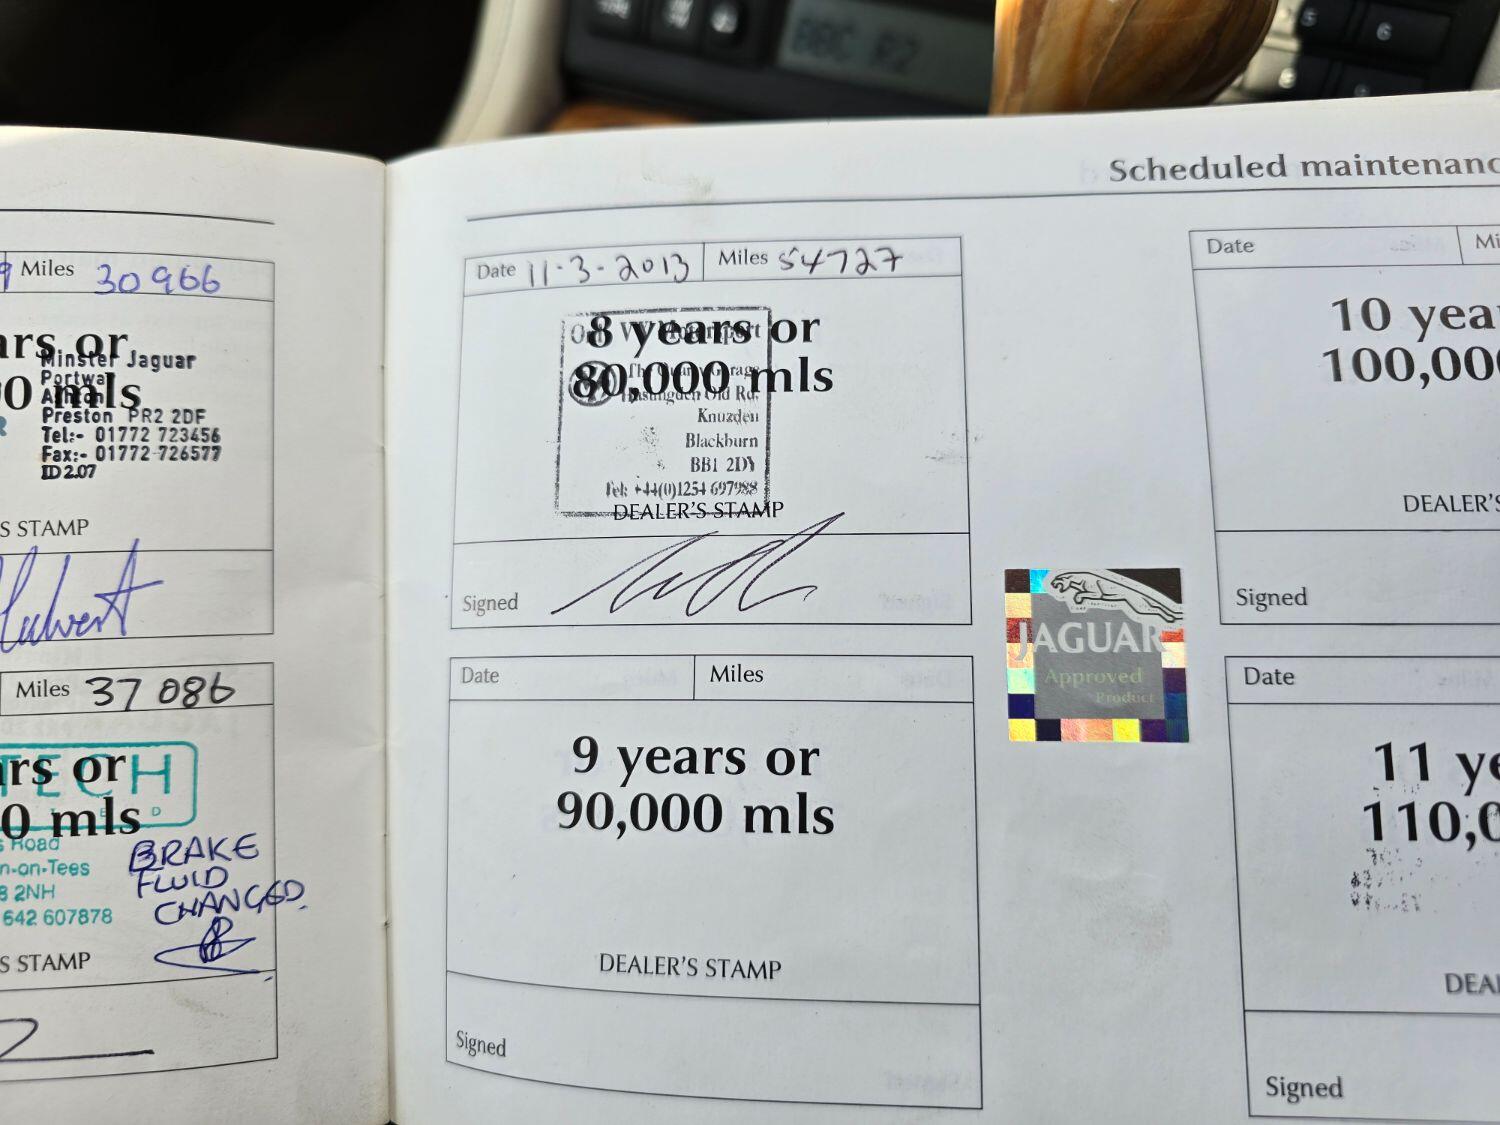 BBC R2
5
6
Scheduled maintenanc
9 Miles 30966
ars or
0 mls
Minster Jaguar
Portwa
Ashton
Preston PR2 2DF
Tel:- 01772 723456
Fax:- 01772 726577
ID 2.07
S STAMP
Miles 37 086
TECH
ars or
0 mls
s Road
n-on-Tees
8 2NH
642 607878
BRAKE
FLUID
CHANGED
S STAMP
Date 11-3-2013 Miles 54727
8 years or
80,000 mls
The Quarry Garage
Haslingden Old Rd.
Knuzden
Blackburn
BB1 2DY
Tel: +44(0)1254 697988
DEALER'S STAMP
Signed
Date Miles
9 years or
90,000 mls
DEALER'S STAMP
Signed
JAGUAR
Approved
Product
Date Mi
10 yea
100,00
DEALER'S
Signed
Date
11 ye
110,0
DEA
Signed